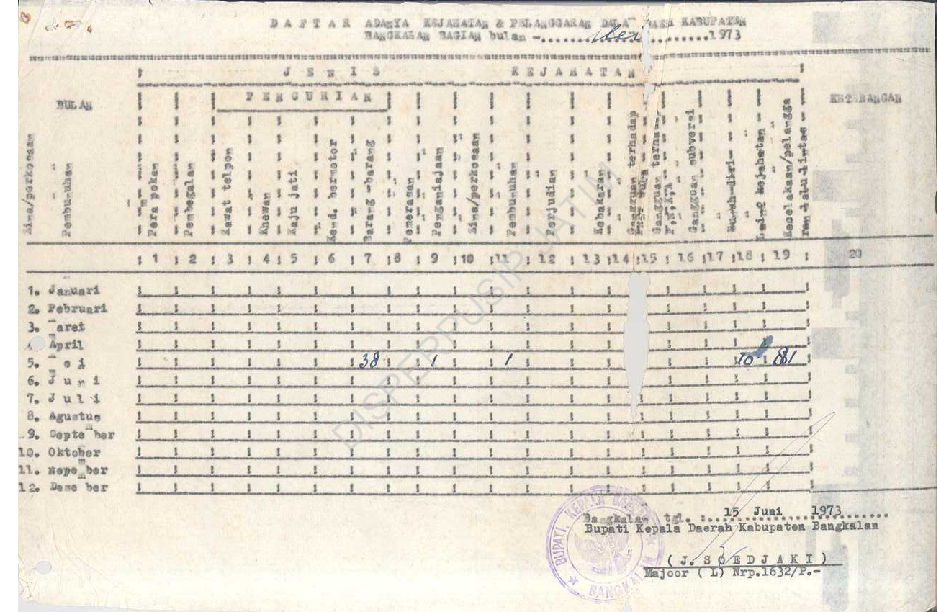 D A F T A R ADANYA KEJAHATAN & PELANGGARAN KABUPATEN
BANGKALAN BAGIAN bulan - Mei 1973
J E N I S K E J A H A T A N
BULAN P E N C U R I A N KETERANGAN
Zina/perkosaan
Pembunuhan
Para pokan
Pembegalan
Kawat telpon
Khewan
Kaju jati
Kend. bermotor
Barang-barang
Pemerasan
Penganiajaan
Zina/perkosaan
Pembunuhan
Perjudian
Kebakaran
Gangguan terhadap
Gangguan terha
Gangguan subversi
Bunuh diri
Kecelakaan/pelangga
1 2 3 4 5 6 7 8 9 10 11 12 13 14 15 16 17 18 19 20
1. Januari
2. Pebruari
3. Maret
4. April
5. M e i 38 1 1 10 81
6. J u n i
7. J u l i
8. Agustus
9. Septe ber
10. Oktober
11. Nope ber
12. Dese ber
Bangkalan tgl. : 15 Juni 1973
Bupati Kepala Daerah Kabupaten Bangkalan
( J. S O E D J A K I )
Majoor ( L ) Nrp.1632/P.-
BUPATI KEPALA DAERAH
BANGKALAN